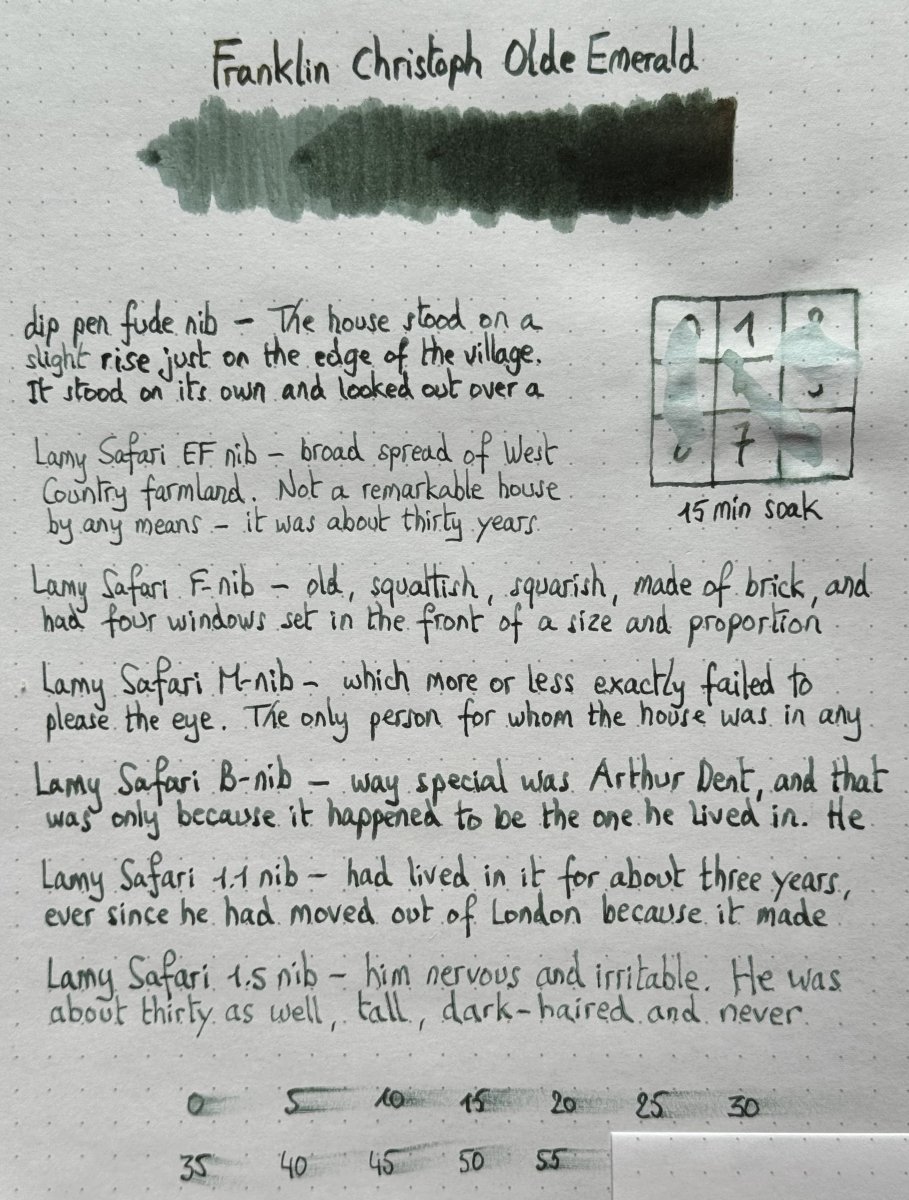 Franklin Christoph Olde Emerald
dip pen fude nib – The house stood on a
slight rise just on the edge of the village.
It stood on its own and looked out over a
1
7
15 min soak
Lamy Safari EF nib – broad spread of West
Country farmland. Not a remarkable house
by any means – it was about thirty years
Lamy Safari F-nib – old, squattish, squarish, made of brick, and
had four windows set in the front of a size and proportion
Lamy Safari M-nib – which more or less exactly failed to
please the eye. The only person for whom the house was in any
Lamy Safari B-nib – way special was Arthur Dent, and that
was only because it happened to be the one he lived in. He
Lamy Safari 1.1 nib – had lived in it for about three years,
ever since he had moved out of London because it made
Lamy Safari 1.5 nib – him nervous and irritable. He was
about thirty as well, tall, dark-haired and never
0 5 10 15 20 25 30
35 40 45 50 55